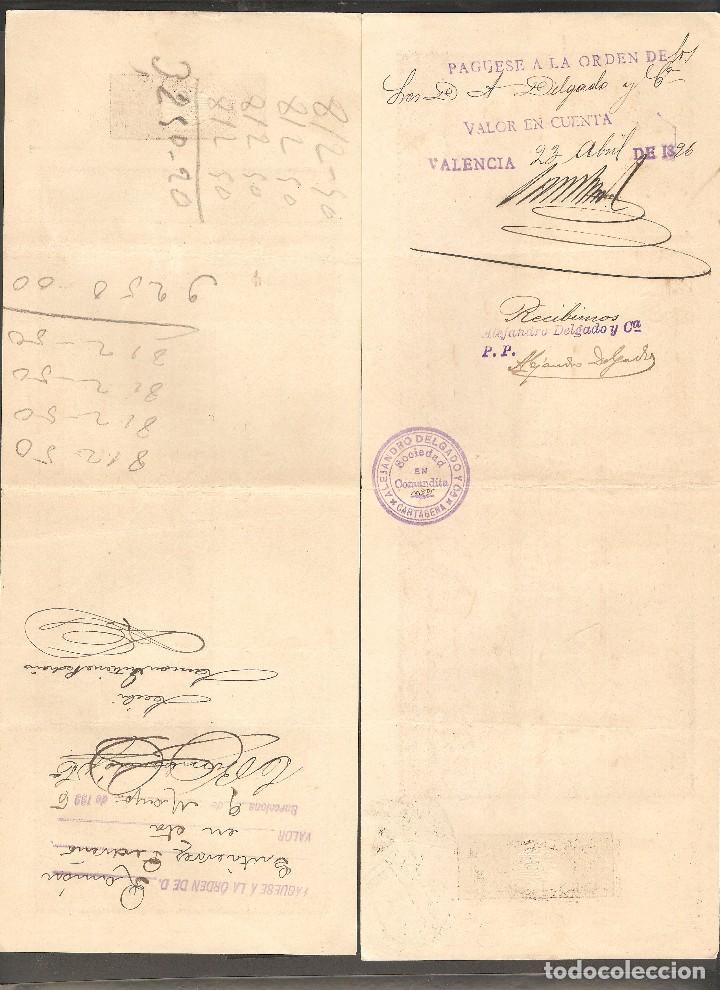 812-50
812 50
812 50
812 50
3250-20
9250-00
812-50
812-50
812-50
812 50
PAGUESE A LA ORDEN DE D.
Ramón
Gutierrez
VALOR en cta
Barcelona 9 de Mayo de 1896
Recibí
PAGUESE A LA ORDEN DE los
Sres D A Delgado y Cª
VALOR EN CUENTA
VALENCIA 23 Abril DE 1896
Recibimos
Alejandro Delgado y Cª
P. P.
Alejandro Delgado
ALEJANDRO DELGADO Y CA
Sociedad
EN
Comandita
CARTAGENA
todocoleccion.net